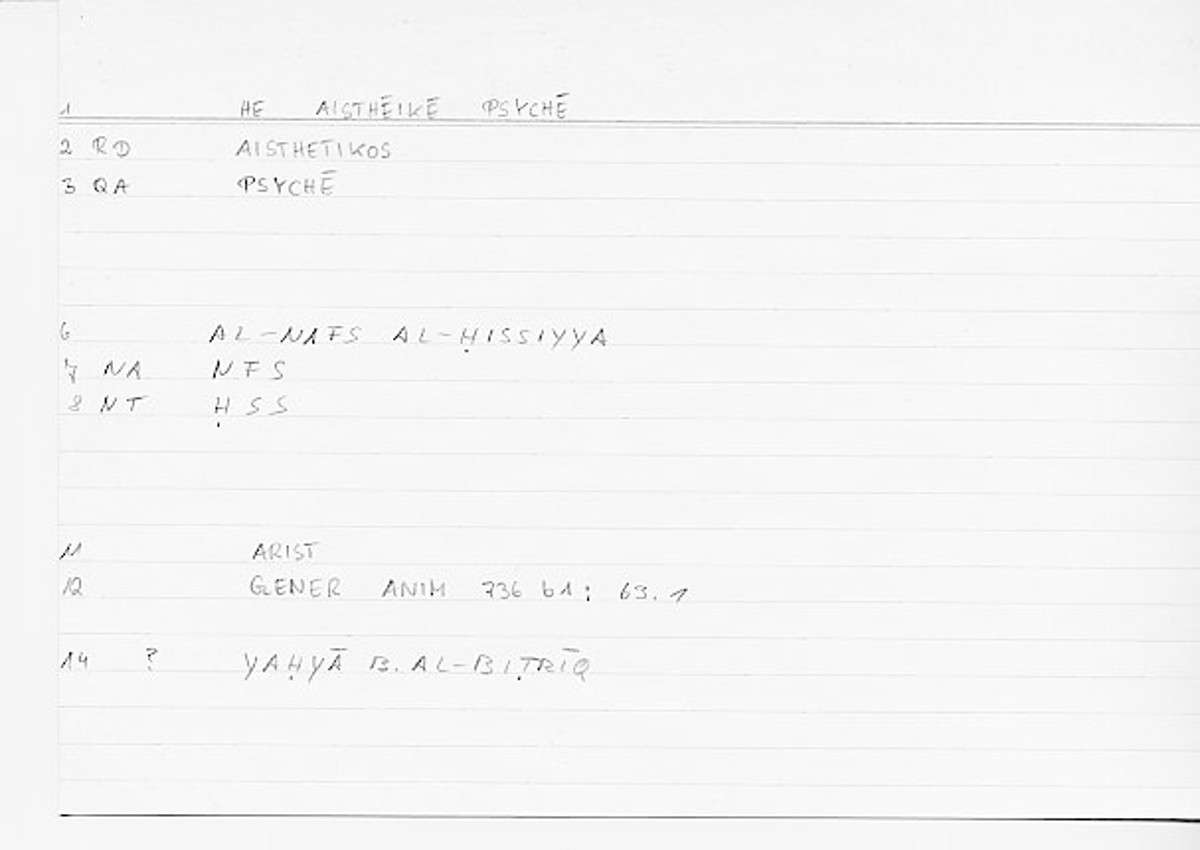 1 HE AISTHĒIKĒ PSYCHĒ
2 RD AISTHETIKOS
3 QA PSYCHĒ
6 AL-NAFS AL-ḤISSIYYA
7 NA NFS
8 NT ḤSS
11 ARIST
12 GENER ANIM 736 b1: 63.1
14 ? YAḤYĀ B. AL-BIṬRĪQ